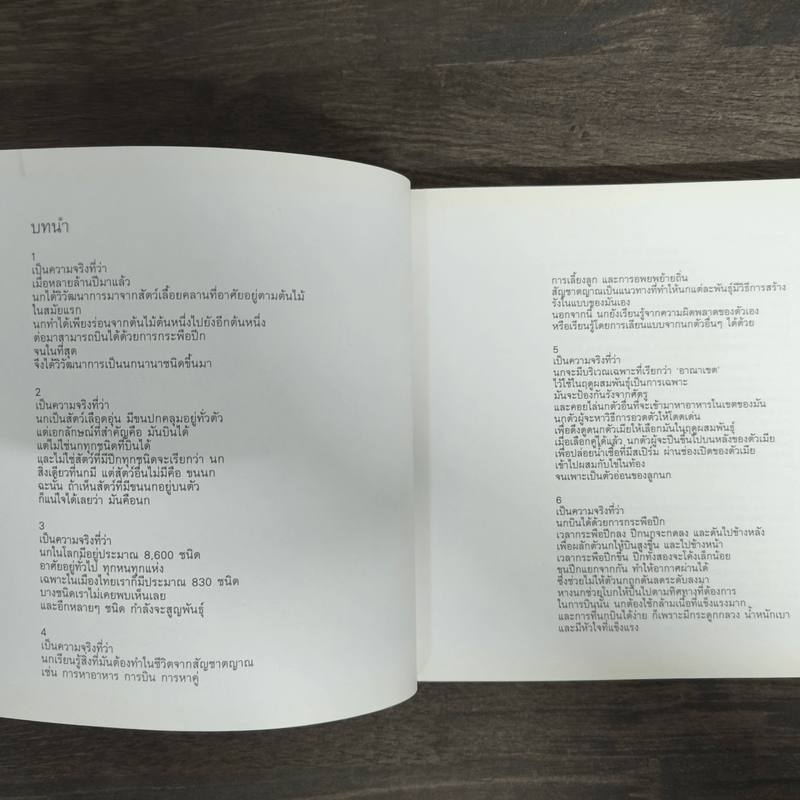 บทนำ
1
เป็นความจริงที่ว่า
เมื่อหลายล้านปีมาแล้ว
นกได้วิวัฒนาการมาจากสัตว์เลื้อยคลานที่อาศัยอยู่ตามต้นไม้
ในสมัยแรก
นกทำได้เพียงร่อนจากต้นไม้ต้นหนึ่งไปยังอีกต้นหนึ่ง
ต่อมาสามารถบินได้ด้วยการกระพือปีก
จนในที่สุด
จึงได้วิวัฒนาการเป็นนกนานาชนิดขึ้นมา
2
เป็นความจริงที่ว่า
นกเป็นสัตว์เลือดอุ่น มีขนปกคลุมอยู่ทั่วตัว
แต่เอกลักษณ์ที่สำคัญคือ มันบินได้
แต่ไม่ใช่นกทุกชนิดที่บินได้
และไม่ใช่สัตว์ที่มีปีกทุกชนิดจะเรียกว่า นก
สิ่งเดียวที่นกมี แต่สัตว์อื่นไม่มีคือ ขนนก
ฉะนั้น ถ้าเห็นสัตว์ที่มีขนนกอยู่บนตัว
ก็แน่ใจได้เลยว่า มันคือนก
3
เป็นความจริงที่ว่า
นกในโลกมีอยู่ประมาณ 8,600 ชนิด
อาศัยอยู่ทั่วไป ทุกหนทุกแห่ง
เฉพาะในเมืองไทยเราก็มีประมาณ 830 ชนิด
บางชนิดเราไม่เคยพบเห็นเลย
และอีกหลายๆ ชนิด กำลังจะสูญพันธุ์
4
เป็นความจริงที่ว่า
นกเรียนรู้สิ่งที่มันต้องทำในชีวิตจากสัญชาตญาณ
เช่น การหาอาหาร การบิน การหาคู่
การเลี้ยงลูก และการอพยพย้ายถิ่น
สัญชาตญาณเป็นแนวทางที่ทำให้นกแต่ละพันธุ์มีวิธีการสร้าง
รังในแบบของมันเอง
นอกจากนี้ นกยังเรียนรู้จากความผิดพลาดของตัวเอง
หรือเรียนรู้โดยการเลียนแบบจากนกตัวอื่นๆ ได้ด้วย
5
เป็นความจริงที่ว่า
นกจะมีบริเวณเฉพาะที่เรียกว่า 'อาณาเขต'
ไว้ใช้ในฤดูผสมพันธุ์เป็นการเฉพาะ
มันจะป้องกันรังจากศัตรู
และคอยไล่นกตัวอื่นที่จะเข้ามาหาอาหารในเขตของมัน
นกตัวผู้จะหาวิธีการอวดตัวให้โดดเด่น
เพื่อดึงดูดนกตัวเมียให้เลือกมันในฤดูผสมพันธุ์
เมื่อเลือกคู่ได้แล้ว นกตัวผู้จะปีนขึ้นไปบนหลังของตัวเมีย
เพื่อปล่อยน้ำเชื้อที่มีสเปิร์ม ผ่านช่องเปิดของตัวเมีย
เข้าไปผสมกับไข่ในท้อง
จนเพาะเป็นตัวอ่อนของลูกนก
6
เป็นความจริงที่ว่า
นกบินได้ด้วยการกระพือปีก
เวลากระพือปีกลง ปีกนกจะกดลง และดันไปข้างหลัง
เพื่อผลักตัวนกให้บินสูงขึ้น และไปข้างหน้า
เวลากระพือปีกขึ้น ปีกทั้งสองจะโค้งเล็กน้อย
ขนปีกแยกจากกัน ทำให้อากาศผ่านได้
ซึ่งช่วยไม่ให้ตัวนกถูกดันลดระดับลงมา
หางนกช่วยโบกให้บินไปตามทิศทางที่ต้องการ
ในการบินนั้น นกต้องใช้กล้ามเนื้อที่แข็งแรงมาก
และการที่นกบินได้ง่าย ก็เพราะมีกระดูกกลวง น้ำหนักเบา
และมีหัวใจที่แข็งแรง